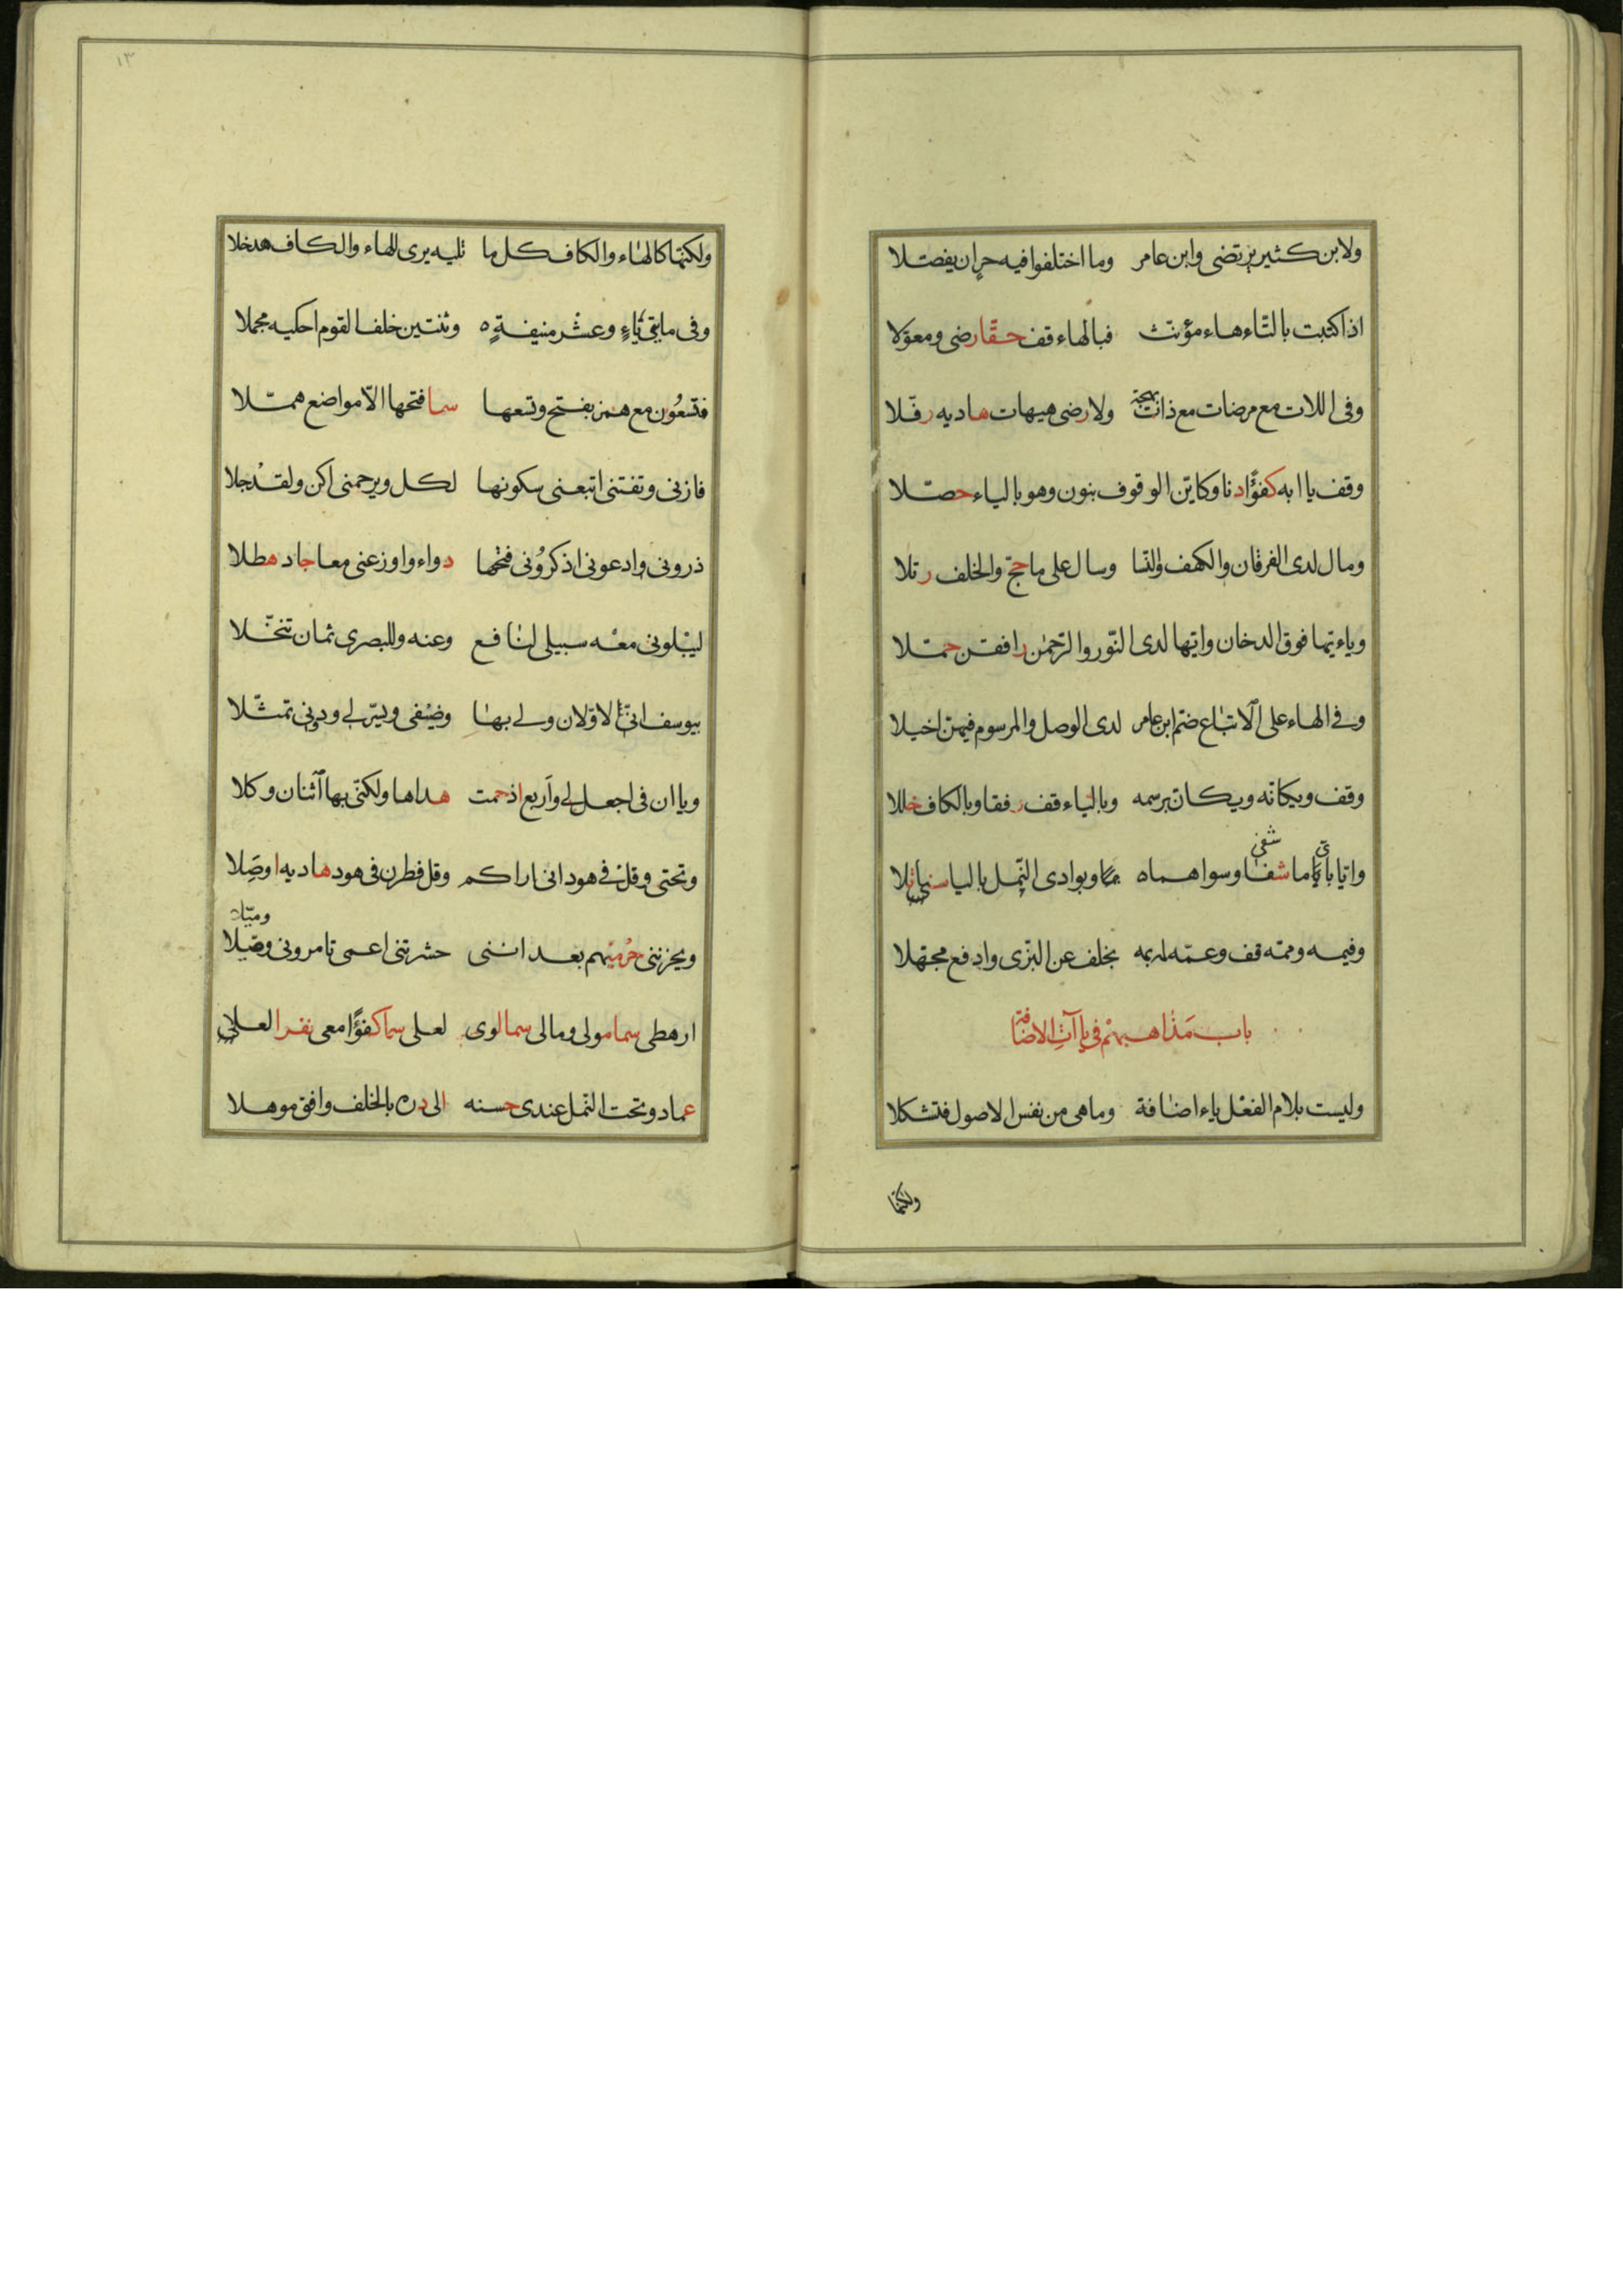 ولابن كثير يرتضى وابن عامر وما اختلفوا فيه حر ان يفصّلا
اذا كتبت بالتّاء هاء مؤنّث فبالهاء قف حقّا رضى ومعوّلا
وفى اللات مع مرضات مع ذات بهجة ولا رضى هيهات هاديه رفّلا
وقف يا ابه كفؤًا دنا وكايّن الوقوف بنون وهو بالياء حصّلا
ومال لدى الفرقان والكهف والنّسا وسال على ما حجّ والخلف رتلا
وياء يّها فوق الدخان وايّها لدى النّور والرّحمٰن رافقن حمّلا
وفي الهاء على الاتباع ضمّ ابن عامر لدى الوصل والمرسوم فيهنّ اخيلا
وقف ويكانّه ويكانّ برسمه وبالياء قف رفقا وبالكاف حللا
شفى
وايّا بايّا ما شفا وسواهما ٥ بما وبوادى النّمل باليا سنا تلا
وفيمه وممّه قف وعمّه لمه بمه بخلف عن البزّى وادفع مجهّلا
باب مَذاهبهمْ فى ياآتِ الاضافة
وليست بلام الفعْل ياء اضافة وما هى من نفس الاصول فتشكلا
ولكنّها
١٣
ولكنّها كالهاء والكاف كل ما تليه يرى للهاء والكاف مدخلا
وفى مايتى ياءٍ وعشْر منيفةٍ ٥ وثنتين خلف القوم احكيه مجملا
فتسعُون مع همز بفتح وتسعها سما فتحها الّا مواضع همّلا
فارنى وتفتنى اتبعنى سكونها لكل ويرحمنى اكن ولقدْ جلا
ذرونى وادعونى اذكرُونى فتحها دواء واوزعنى معا جاد هطلا
ليبْلونى معْه سبيلى لنافع وعنه وللبصرى ثمان تنخّلا
بيوسف انّى الاوّلان ولي بها وضيْفى ويسّر لي ودونى تمثّلا
وياان فى اجعل لي واربع اذ حمت هداها ولكنّى بها اثنان وكلا
وتحتى وقل في هود انى اراكم وقل فطرن فى هود هاديه اوصَلا
وميّلا
ويحزننى حرْميّهم بعداننى حشرتنى اعمى تامرونى وصّلا
ارهطى سما مولى ومالى سما لوى لعلى سما كفؤًا معى نفر العلا
عماد وتحت النّمل عندى حسنه الى درّه بالخلف وافق موهلا